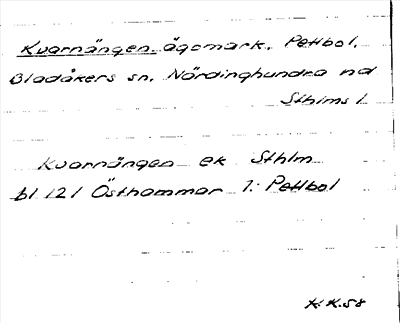 Kvarnängen ägomark. Pettbol.
Bladåkers sn. Närdinghundra hd
Sthlms l.
Kvarnängen ek Sthlm
bl 121 Östhammar 1: Pettbol
K.K. 58